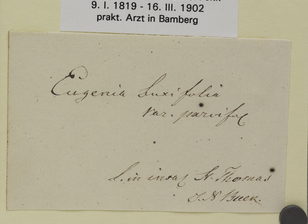 9. I. 1819 - 16. III. 1902
prakt. Arzt in Bamberg
Eugenia buxifolia
var. parvifol
L. in insul St. Thomas
J. N. Buek.